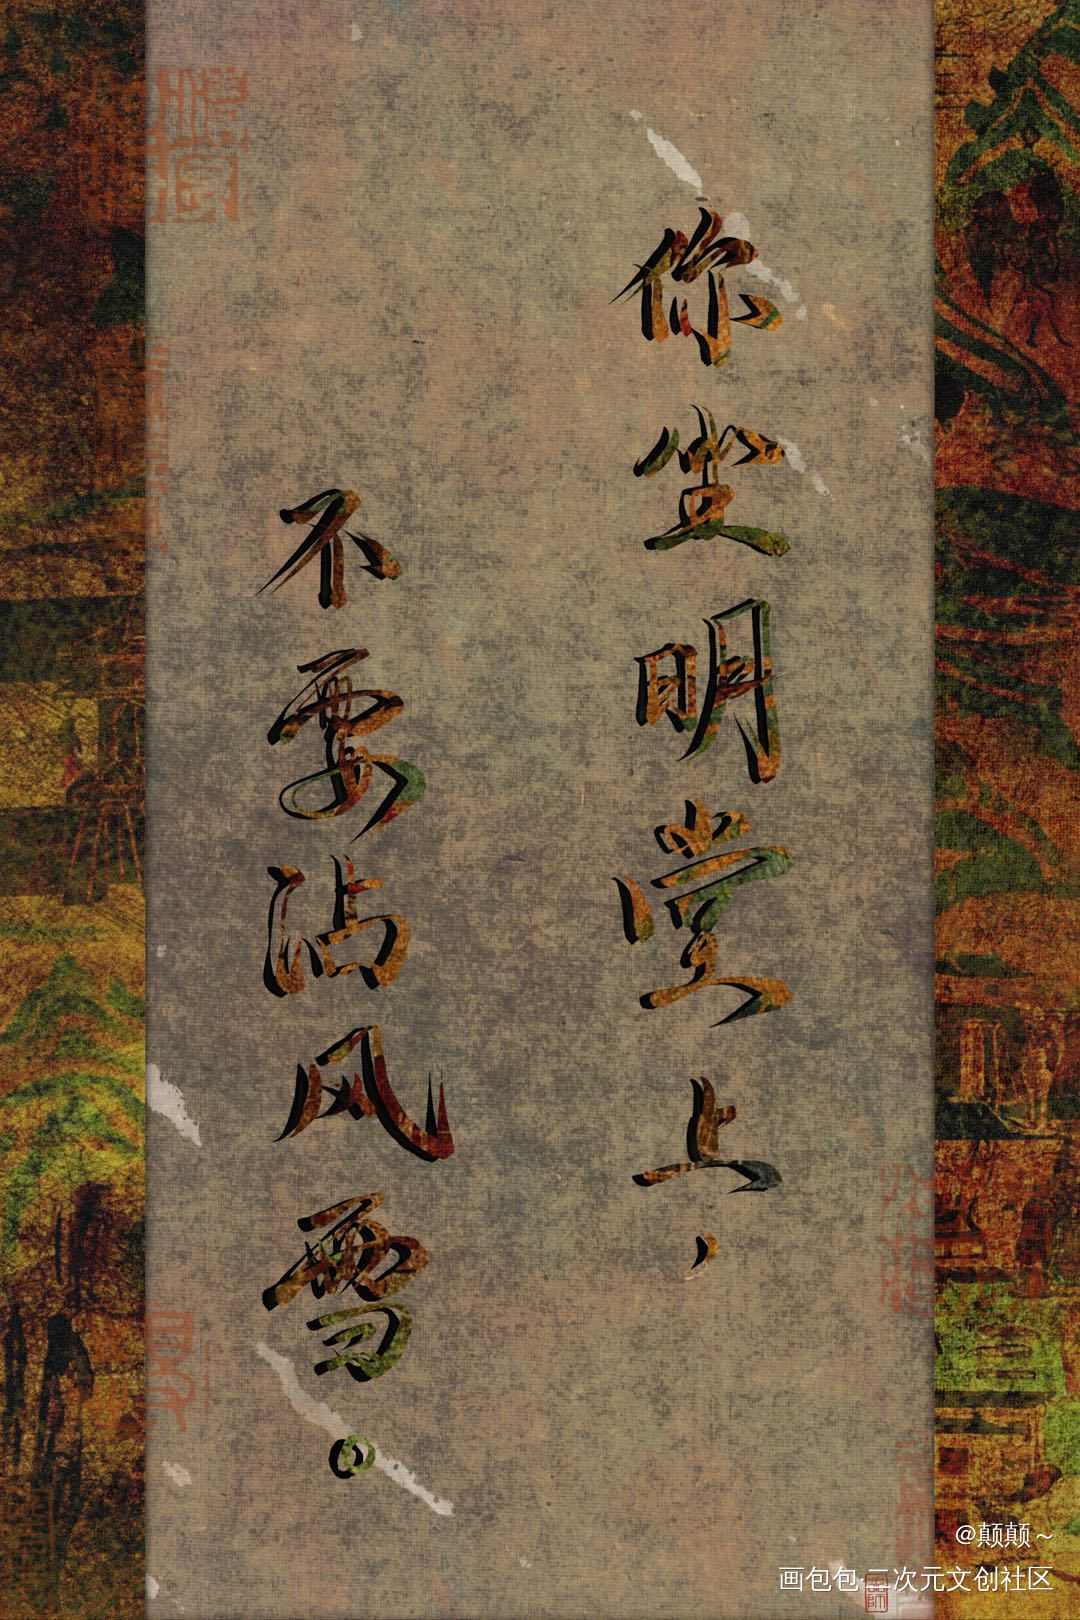 你坐明堂上，
不要沾风雪。
@颠颠～
画包包·二次元文创社区